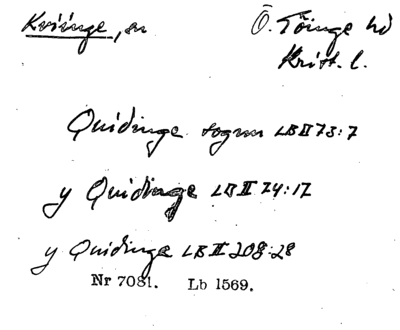 Kviinge, sn
Ö. Göinge hd
Krist. l.
Quidinge sognn LB II 73:7
y Quidinge LB II 74:12
y Quidinge LB II 208:28
Nr 7081. Lb 1569.